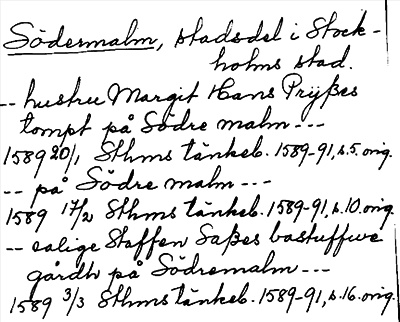 Södermalm, stadsdel i Stock-
holms stad.
-- hustru Margit Hans Pryßes
tompt på Södre malm ---
1589 20/1 Sthms tänkeb. 1589-91, s.5. orig.
-- på Södre malm ---
1589 17/2 Sthms tänkeb. 1589-91, s.10. orig.
-- salige Staffen Saßes bastuffwe
gårdh på Södremalm ---
1589 3/3 Sthms tänkeb. 1589-91, s.16. orig.